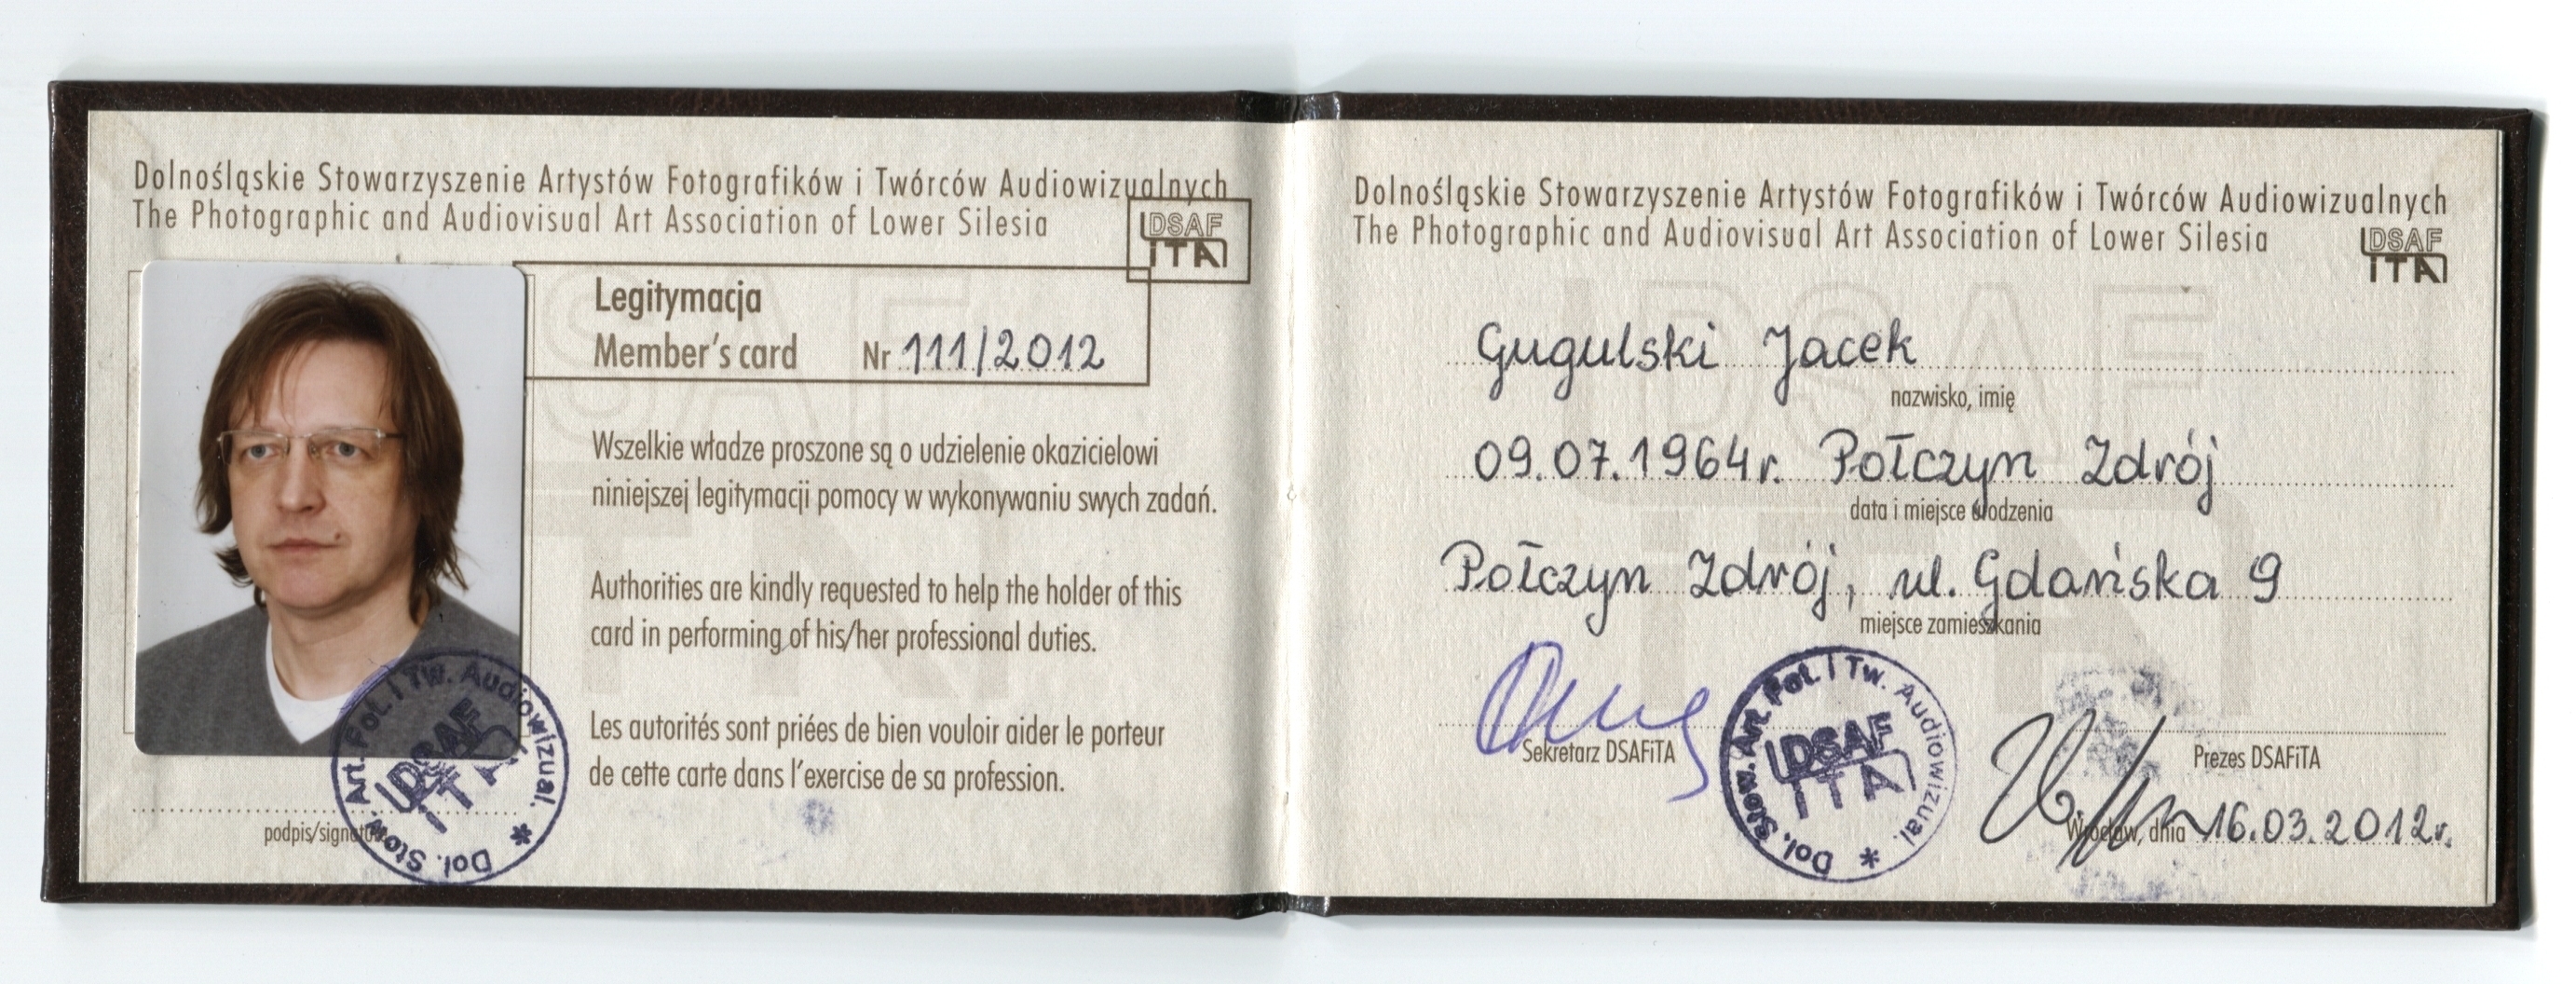 Dolnośląskie Stowarzyszenie Artystów Fotografików i Twórców Audiowizualnych
The Photographic and Audiovisual Art Association of Lower Silesia
DSAF
iTA
Legitymacja
Member's card Nr 111/2012
Wszelkie władze proszone są o udzielenie okazicielowi
niniejszej legitymacji pomocy w wykonywaniu swych zadań.
Authorities are kindly requested to help the holder of this
card in performing of his/her professional duties.
Les autorités sont priées de bien vouloir aider le porteur
de cette carte dans l'exercise de sa profession.
podpis/signature
Dol. Stow. Art. Fot. i Tw. Audiowizual. *
DSAF
iTA
Dolnośląskie Stowarzyszenie Artystów Fotografików i Twórców Audiowizualnych
The Photographic and Audiovisual Art Association of Lower Silesia
DSAF
iTA
Gugulski Jacek
nazwisko, imię
09.07.1964r. Połczyn Zdrój
data i miejsce urodzenia
Połczyn Zdrój, ul. Gdańska 9
miejsce zamieszkania
Sekretarz DSAFiTA
Dol. Stow. Art. Fot. i Tw. Audiowizual. *
DSAF
iTA
Prezes DSAFiTA
Wrocław, dnia 16.03.2012r.